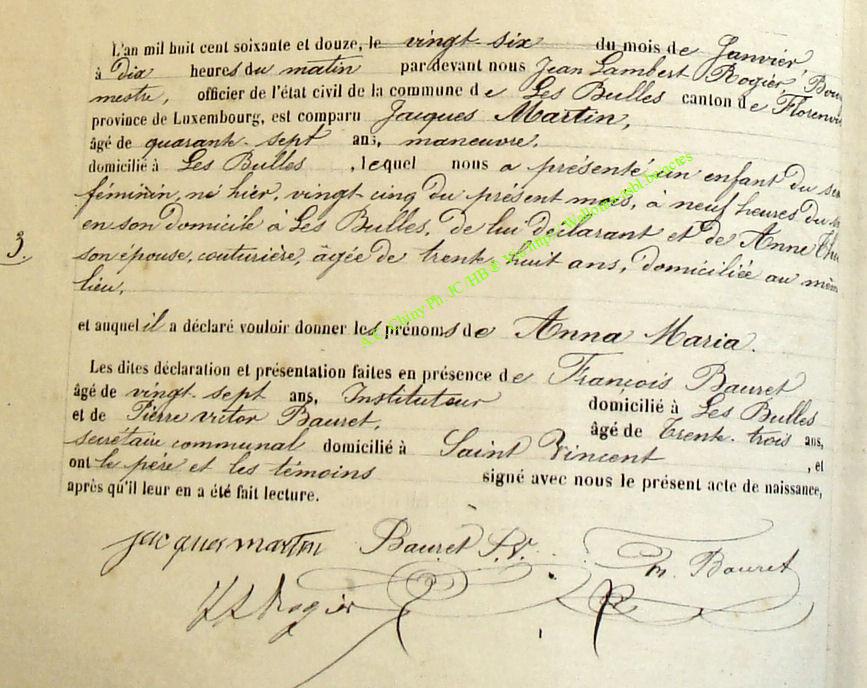 L'an mil huit cent soixante et douze, le vingt-six du mois de Janvier,
à Dix heures du matin par devant nous Jean Lambert Rogier, Bourg
mestre, officier de l'état civil de la commune de Les Bulles canton de Florenvi
province de Luxembourg, est comparu Jacques Martin,
âgé de quarante-sept ans, maneuvre,
domicilié à Les Bulles, lequel nous a présenté un enfant du sexe
féminin, né hier, vingt-cinq du présent mois, à neuf heures du
en son domicile à Les Bulles, de lui déclarant et de Anne
3. son épouse, couturière, âgée de trente-huit ans, domiciliée au même
lieu,
et auquel il a déclaré vouloir donner les prénoms de Anna Maria.
Les dites déclaration et présentation faites en présence de François Bauret
âgé de vingt-sept ans, Instituteur domicilié à Les Bulles
et de Pierre victor Bauret, âgé de Trente-trois ans,
secrétaire communal domicilié à Saint Vincent, et
ont le père et les témoins signé avec nous le présent acte de naissance,
après qu'il leur en a été fait lecture.
jacques martin Bauret P.V. Bauret
Rogier